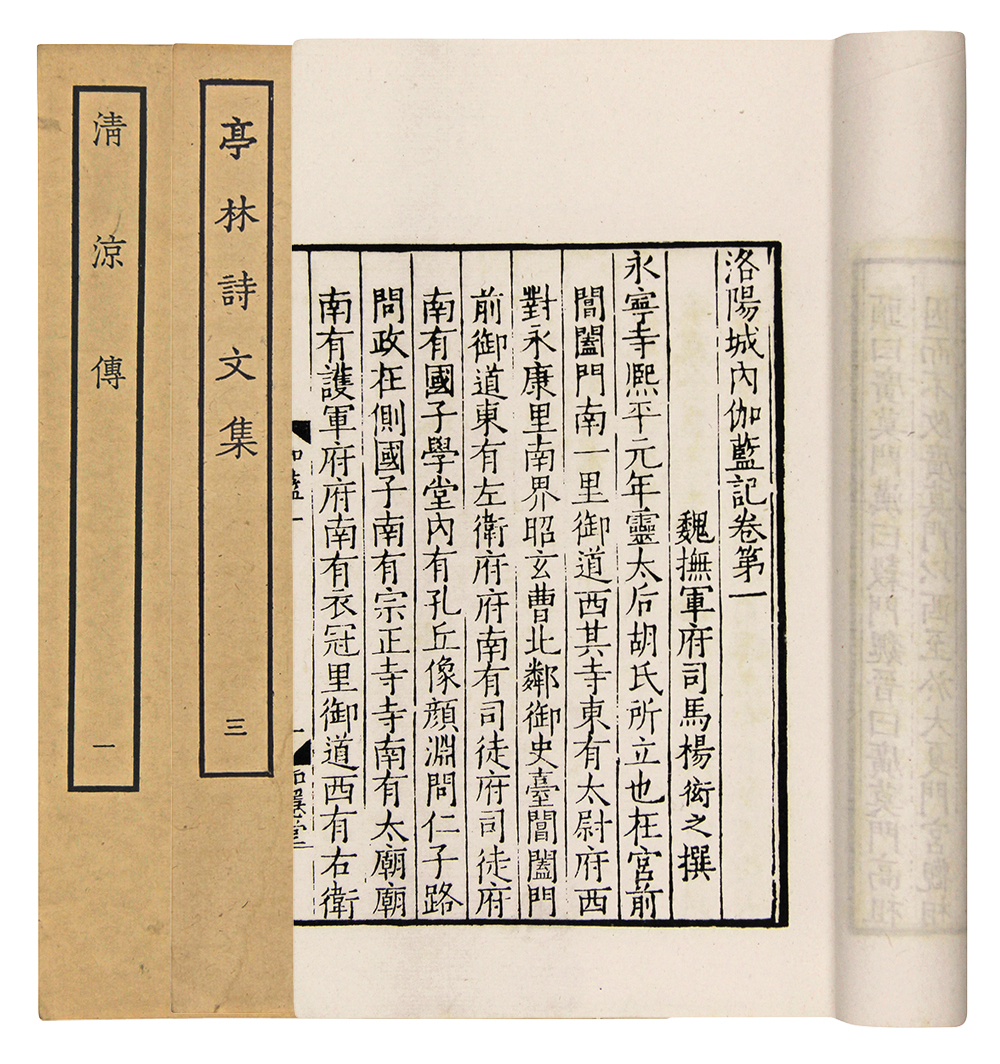 洛陽城內伽藍記卷第一
魏撫軍府司馬楊衒之撰
永寧寺熙平元年靈太后胡氏所立也在宮前
閶闔門南一里御道西其寺東有太尉府西
對永康里南界昭玄曹北鄰御史臺閶闔門
前御道東有左衛府府南有司徒府司徒府
南有國子學堂內有孔丘像顏淵問仁子路
問政在側國子南有宗正寺寺南有太廟廟
南有護軍府府南有衣冠里御道西有右衛
亭林詩文集
三
清涼傳
一